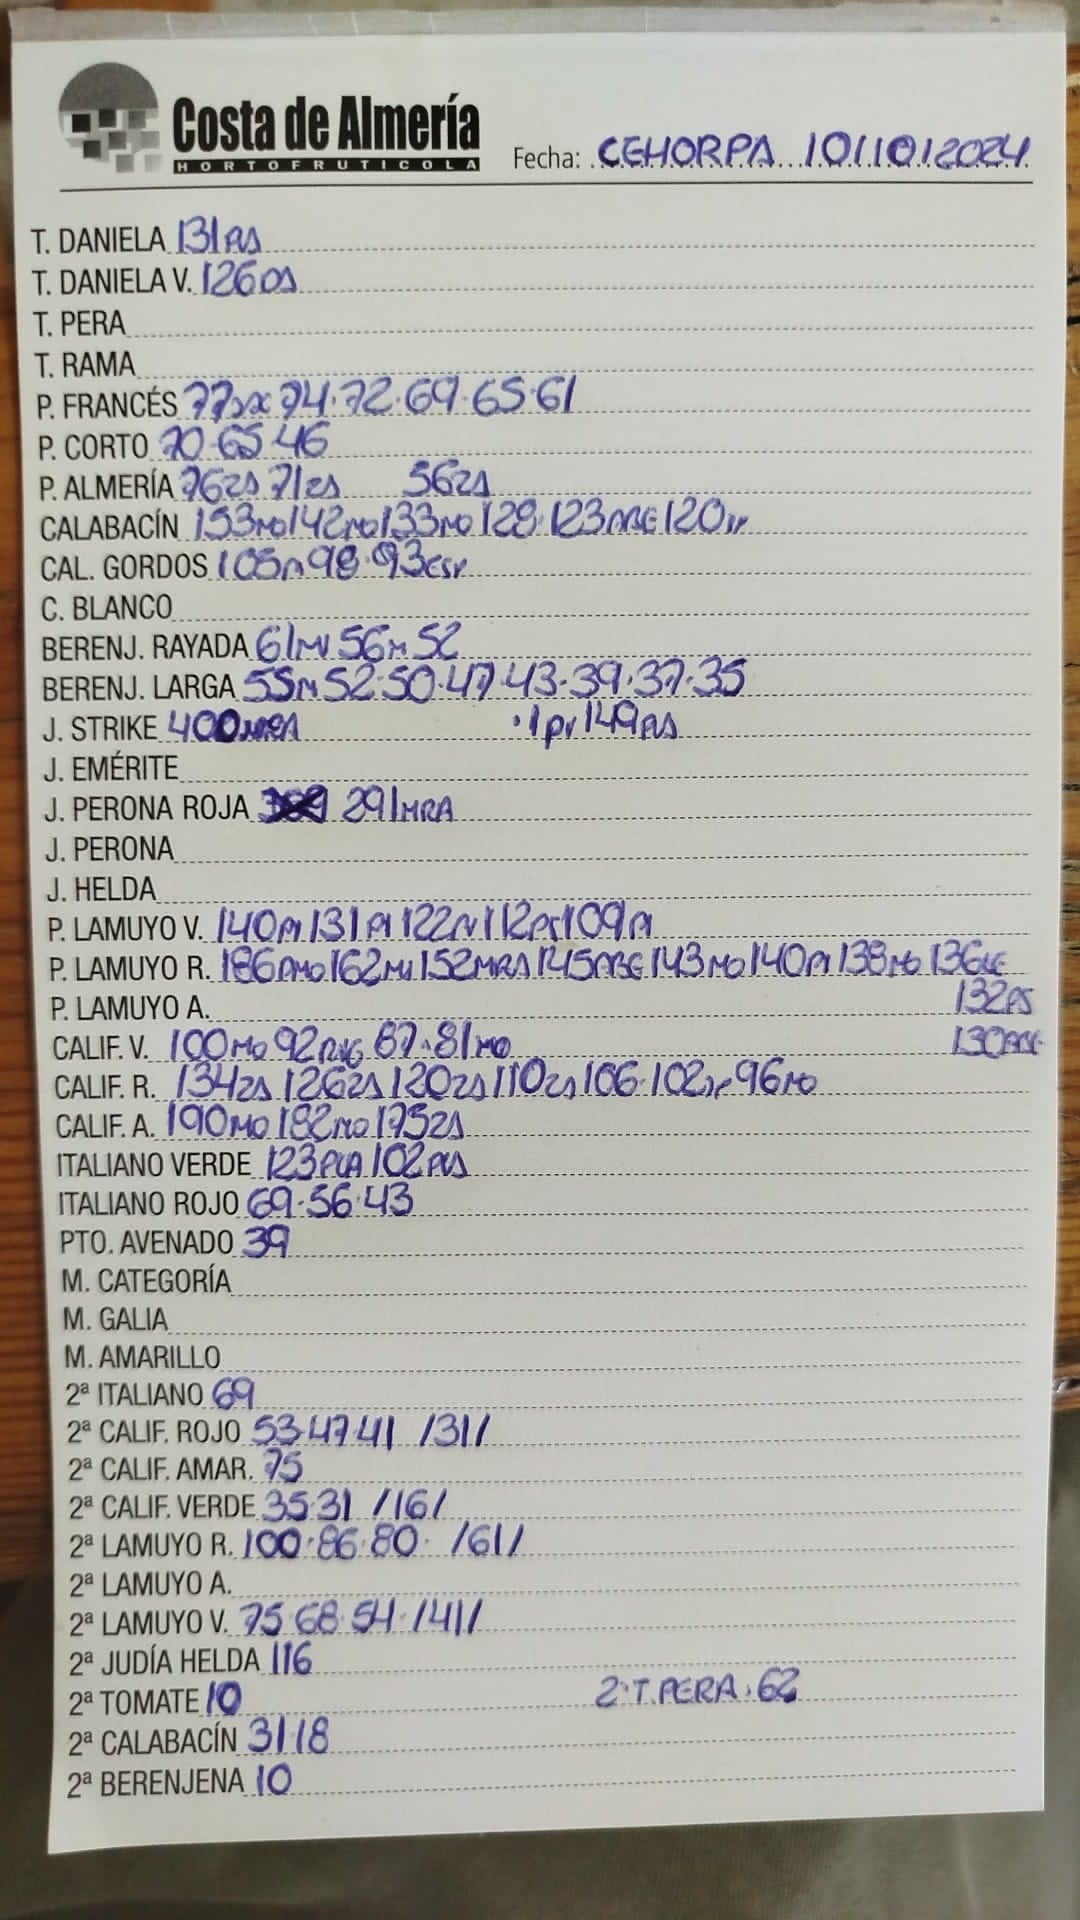 Costa de Almería
HORTOFRUTICOLA
Fecha: CEHORPA 10/10/2024
T. DANIELA 131
T. DANIELA V. 126
T. PERA
T. RAMA
P. FRANCÉS 77 74·72·69·65·61
P. CORTO 70·65·46
P. ALMERÍA 76ZS 71ZS 56ZS
CALABACÍN 153MO 142MO 133MO 128·123 120
CAL. GORDOS 105 98·93
C. BLANCO
BERENJ. RAYADA 61 56M 52
BERENJ. LARGA 55M 52·50·47·43·39·37·35
J. STRIKE 400MRA ·1 149
J. EMÉRITE
J. PERONA ROJA 291MRA
J. PERONA
J. HELDA
P. LAMUYO V. 140PI 131PI 122 112 109PI
P. LAMUYO R. 186 162 152MRA 145 143MO 140PI 138MO 136
P. LAMUYO A. 132PS
CALIF. V. 100MO 92 87·81MO 130
CALIF. R. 134ZS 126ZS 120ZS 110ZS 106·102 96MO
CALIF. A. 190MO 182MO 175ZS
ITALIANO VERDE 123 102
ITALIANO ROJO 69·56·43
PTO. AVENADO 39
M. CATEGORÍA
M. GALIA
M. AMARILLO
2ª ITALIANO 69
2ª CALIF. ROJO 53·47·41 /31/
2ª CALIF. AMAR. 75
2ª CALIF. VERDE 35·31 /16/
2ª LAMUYO R. 100·86·80· /61/
2ª LAMUYO A.
2ª LAMUYO V. 75·68·54·/41/
2ª JUDÍA HELDA 116
2ª TOMATE 10 2·T.PERA·62
2ª CALABACÍN 31·18
2ª BERENJENA 10